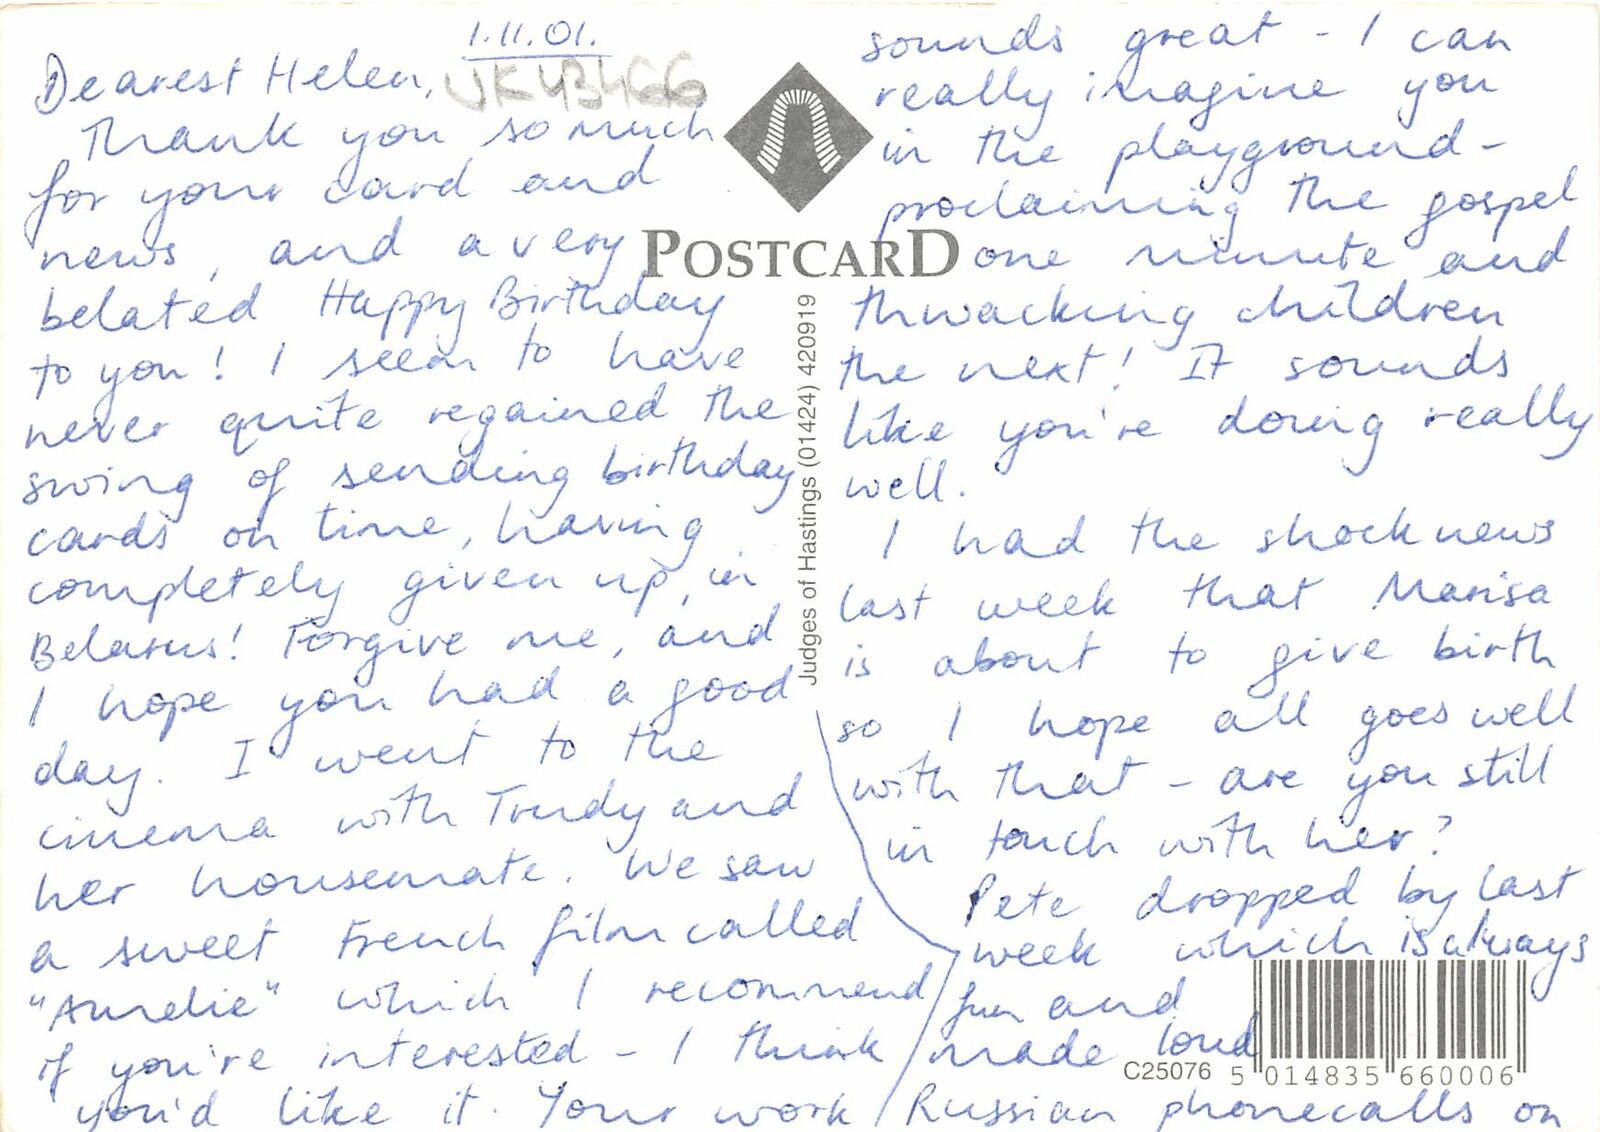 1.11.01.
Dearest Helen,
UK43466
Thank you so much
for your card and
news, and a very
belated Happy Birthday
to you! I seem to have
never quite regained the
swing of sending birthday
cards on time, having
completely given up, in
Belarus! Forgive me, and
I hope you had a good
day. I went to the
cinema with Trudy and
her housemate. We saw
a sweet French film called
"Amelie" which I recommend
if you're interested - I think
you'd like it. Your work
POSTCARD
Judges of Hastings (01424) 420919
sounds great - I can
really imagine you
in the playground-
proclaiming the gospel
one minute and
thwacking children
the next! It sounds
like you're doing really
well.
I had the shock news
last week that Marisa
is about to give birth
so I hope all goes well
with that - are you still
in touch with her?
Pete dropped by last
week which is always
fun and
made loud
Russian phonecalls on
C25076
5 014835 660006